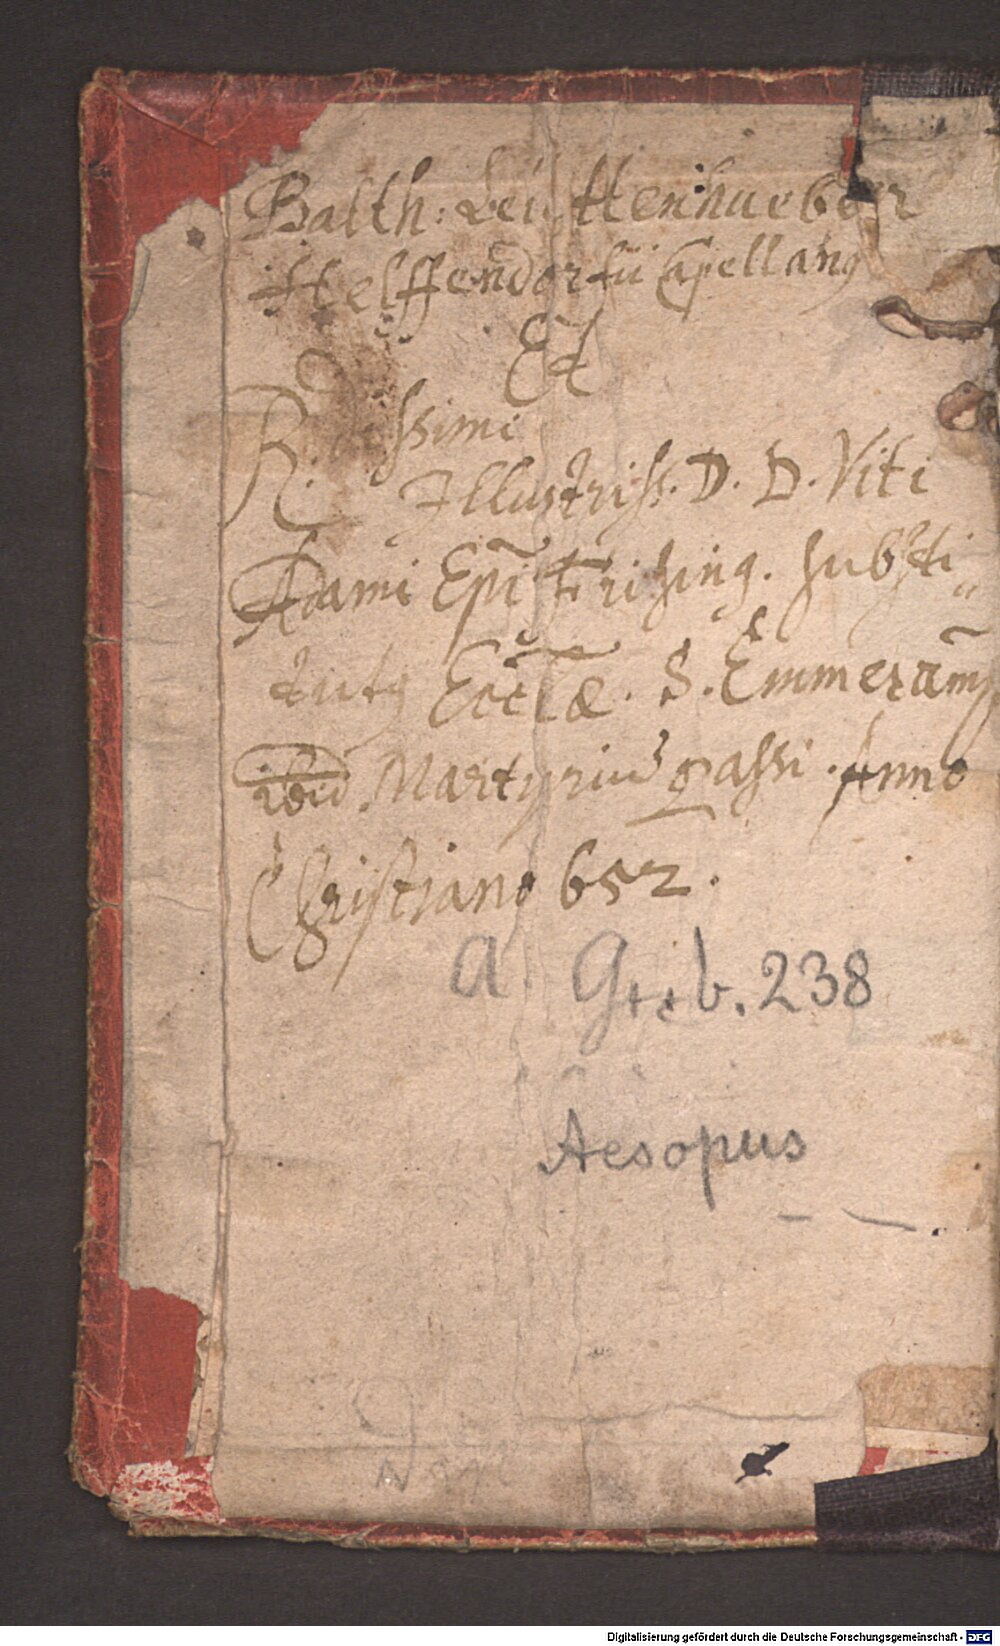 Balth: Leüttenhueber
Helffendorfii Capellanꝰ
Et
R. issimi
Illustriss. D. D. Viti
Adami Epī Frising. substi„
tutꝰ Eccłæ. S. Emmerāmj
ibid Martyriū passi. Anno
Christiano 652.
A. Gr. b. 238
Aesopus
Digitalisierung gefördert durch die Deutsche Forschungsgemeinschaft - DFG